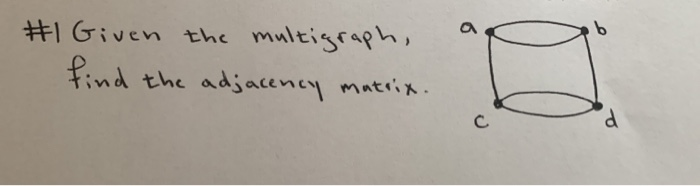 #1 Given the multigraph,
find the adjacency matrix.
a b
c d